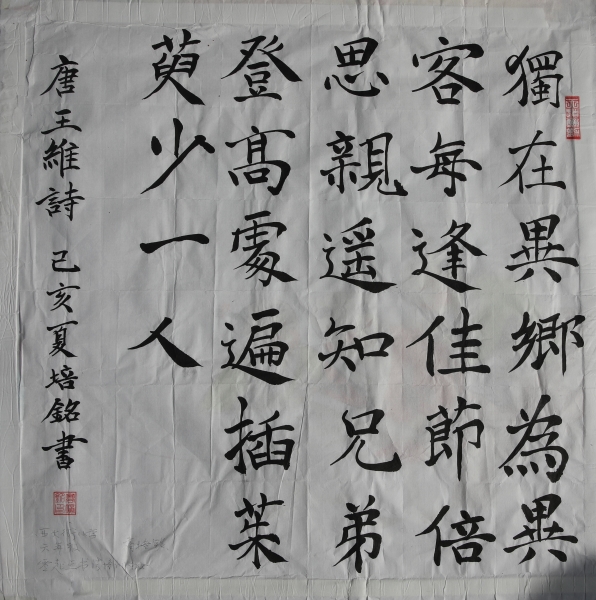 獨在異鄉為異
客每逢佳節倍
思親遥知兄弟
登髙處遍插茱
萸少一人
唐王維詩 己亥夏培銘書